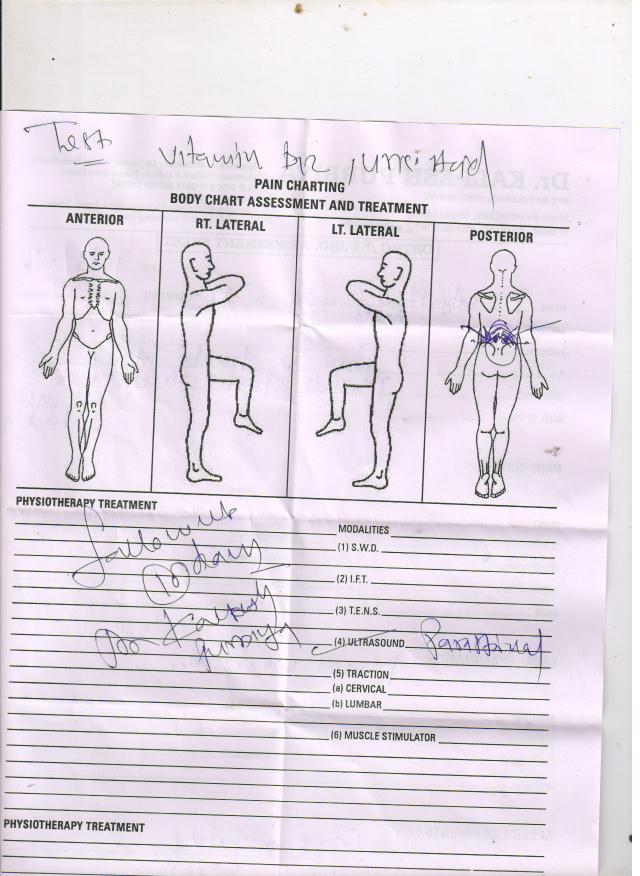 Test Vitamin B12, Uric Acid
PAIN CHARTING
BODY CHART ASSESSMENT AND TREATMENT
ANTERIOR
RT. LATERAL
LT. LATERAL
POSTERIOR
PHYSIOTHERAPY TREATMENT
MODALITIES
(1) S.W.D.
(2) I.F.T.
(3) T.E.N.S.
(4) ULTRASOUND Paraspinal
(5) TRACTION
(a) CERVICAL
(b) LUMBAR
(6) MUSCLE STIMULATOR
10 days
Dr Kalpesh
PHYSIOTHERAPY TREATMENT